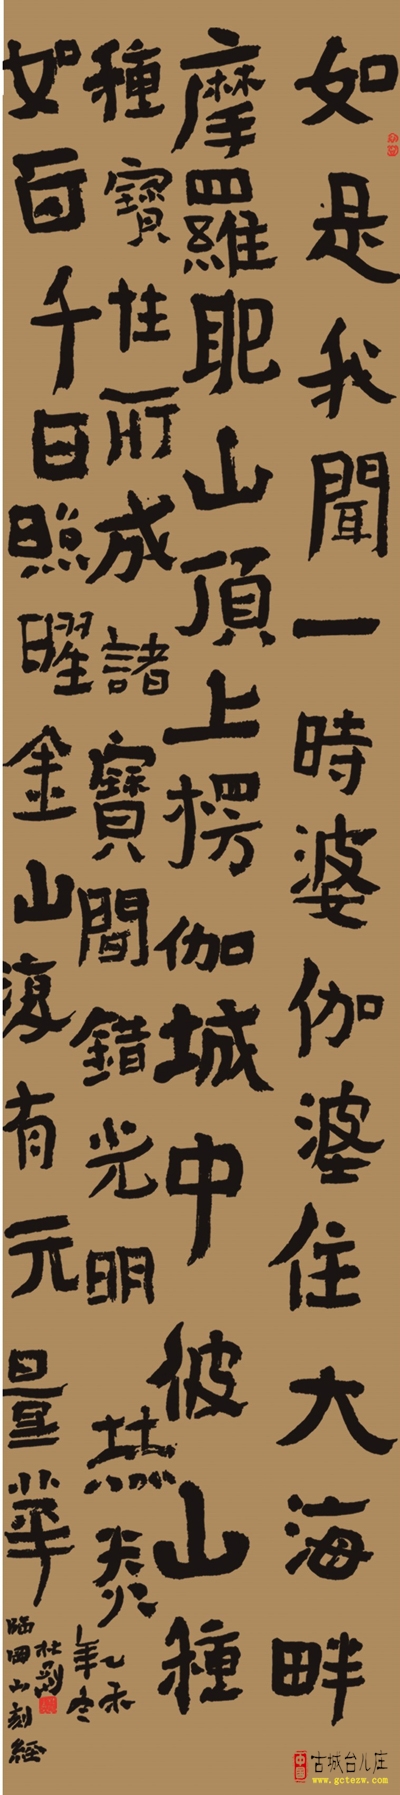 如是我聞一時婆伽婆住大海畔
摩羅耶山頂上楞伽城中彼山種
種寶性所成諸寶間錯光明赫炎
如百千日照曜金山復有无量華
乙未年冬
臨岡山刻經
中國
古城台儿庄
www.gctezw.com